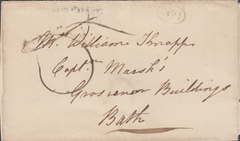 Mr. William Knapp
Captn. Marsh's
Grosvenor Buildings
Bath